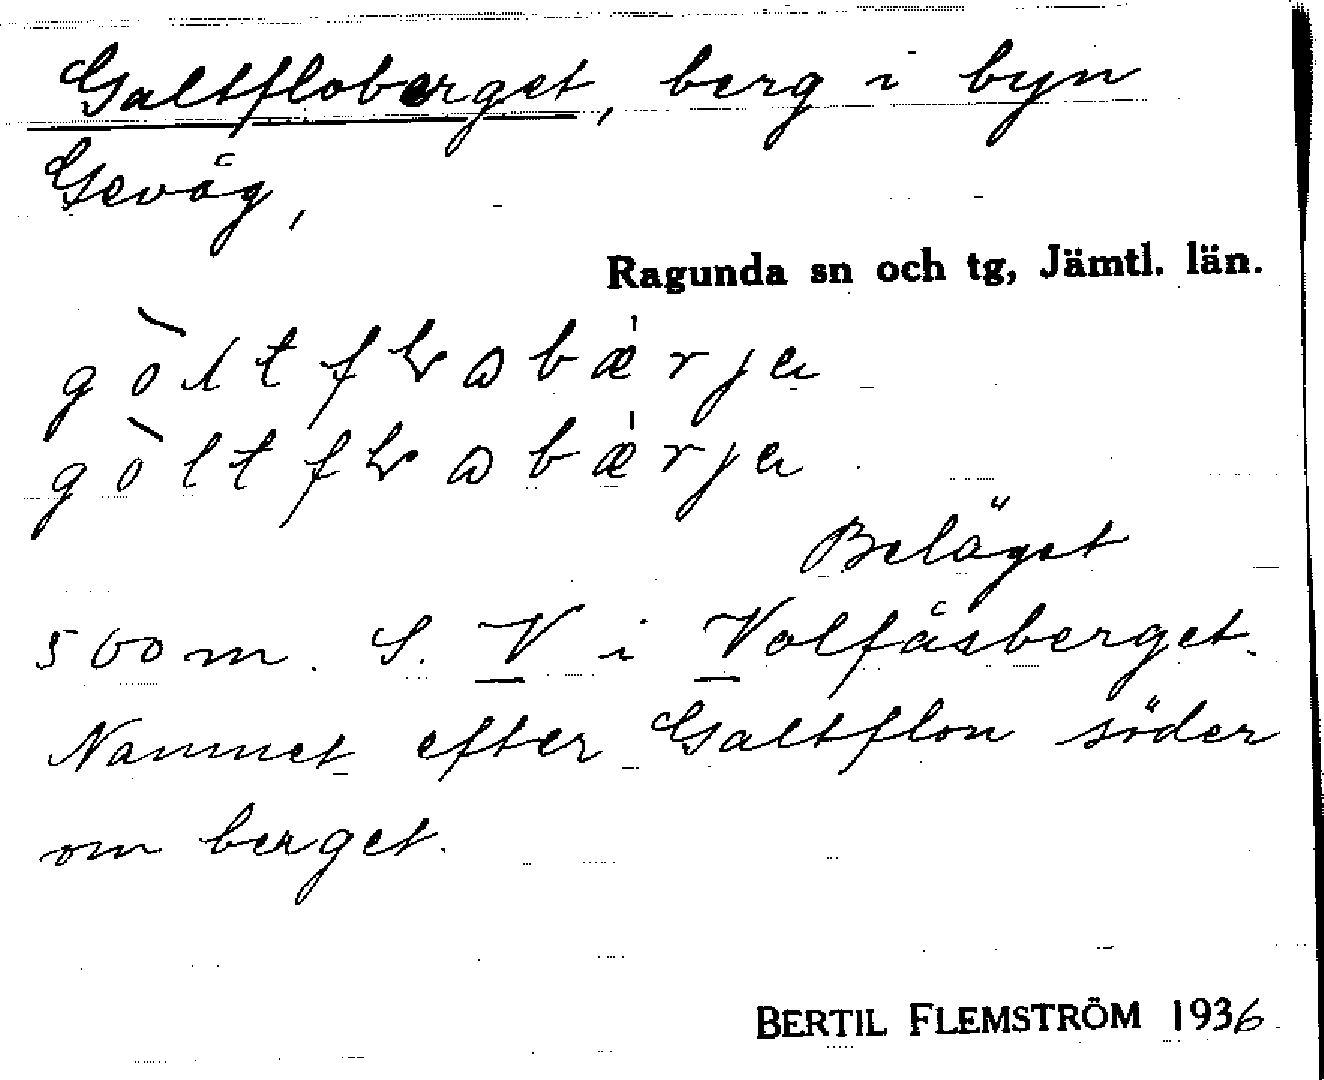 Galtfloberget, berg i byn
Gevåg,
Ragunda sn och tg, Jämtl. län.
Beläget
500 m. S. V i Volfåsberget.
Namnet efter Galtflon söder
om berget.
BERTIL FLEMSTRÖM 1936